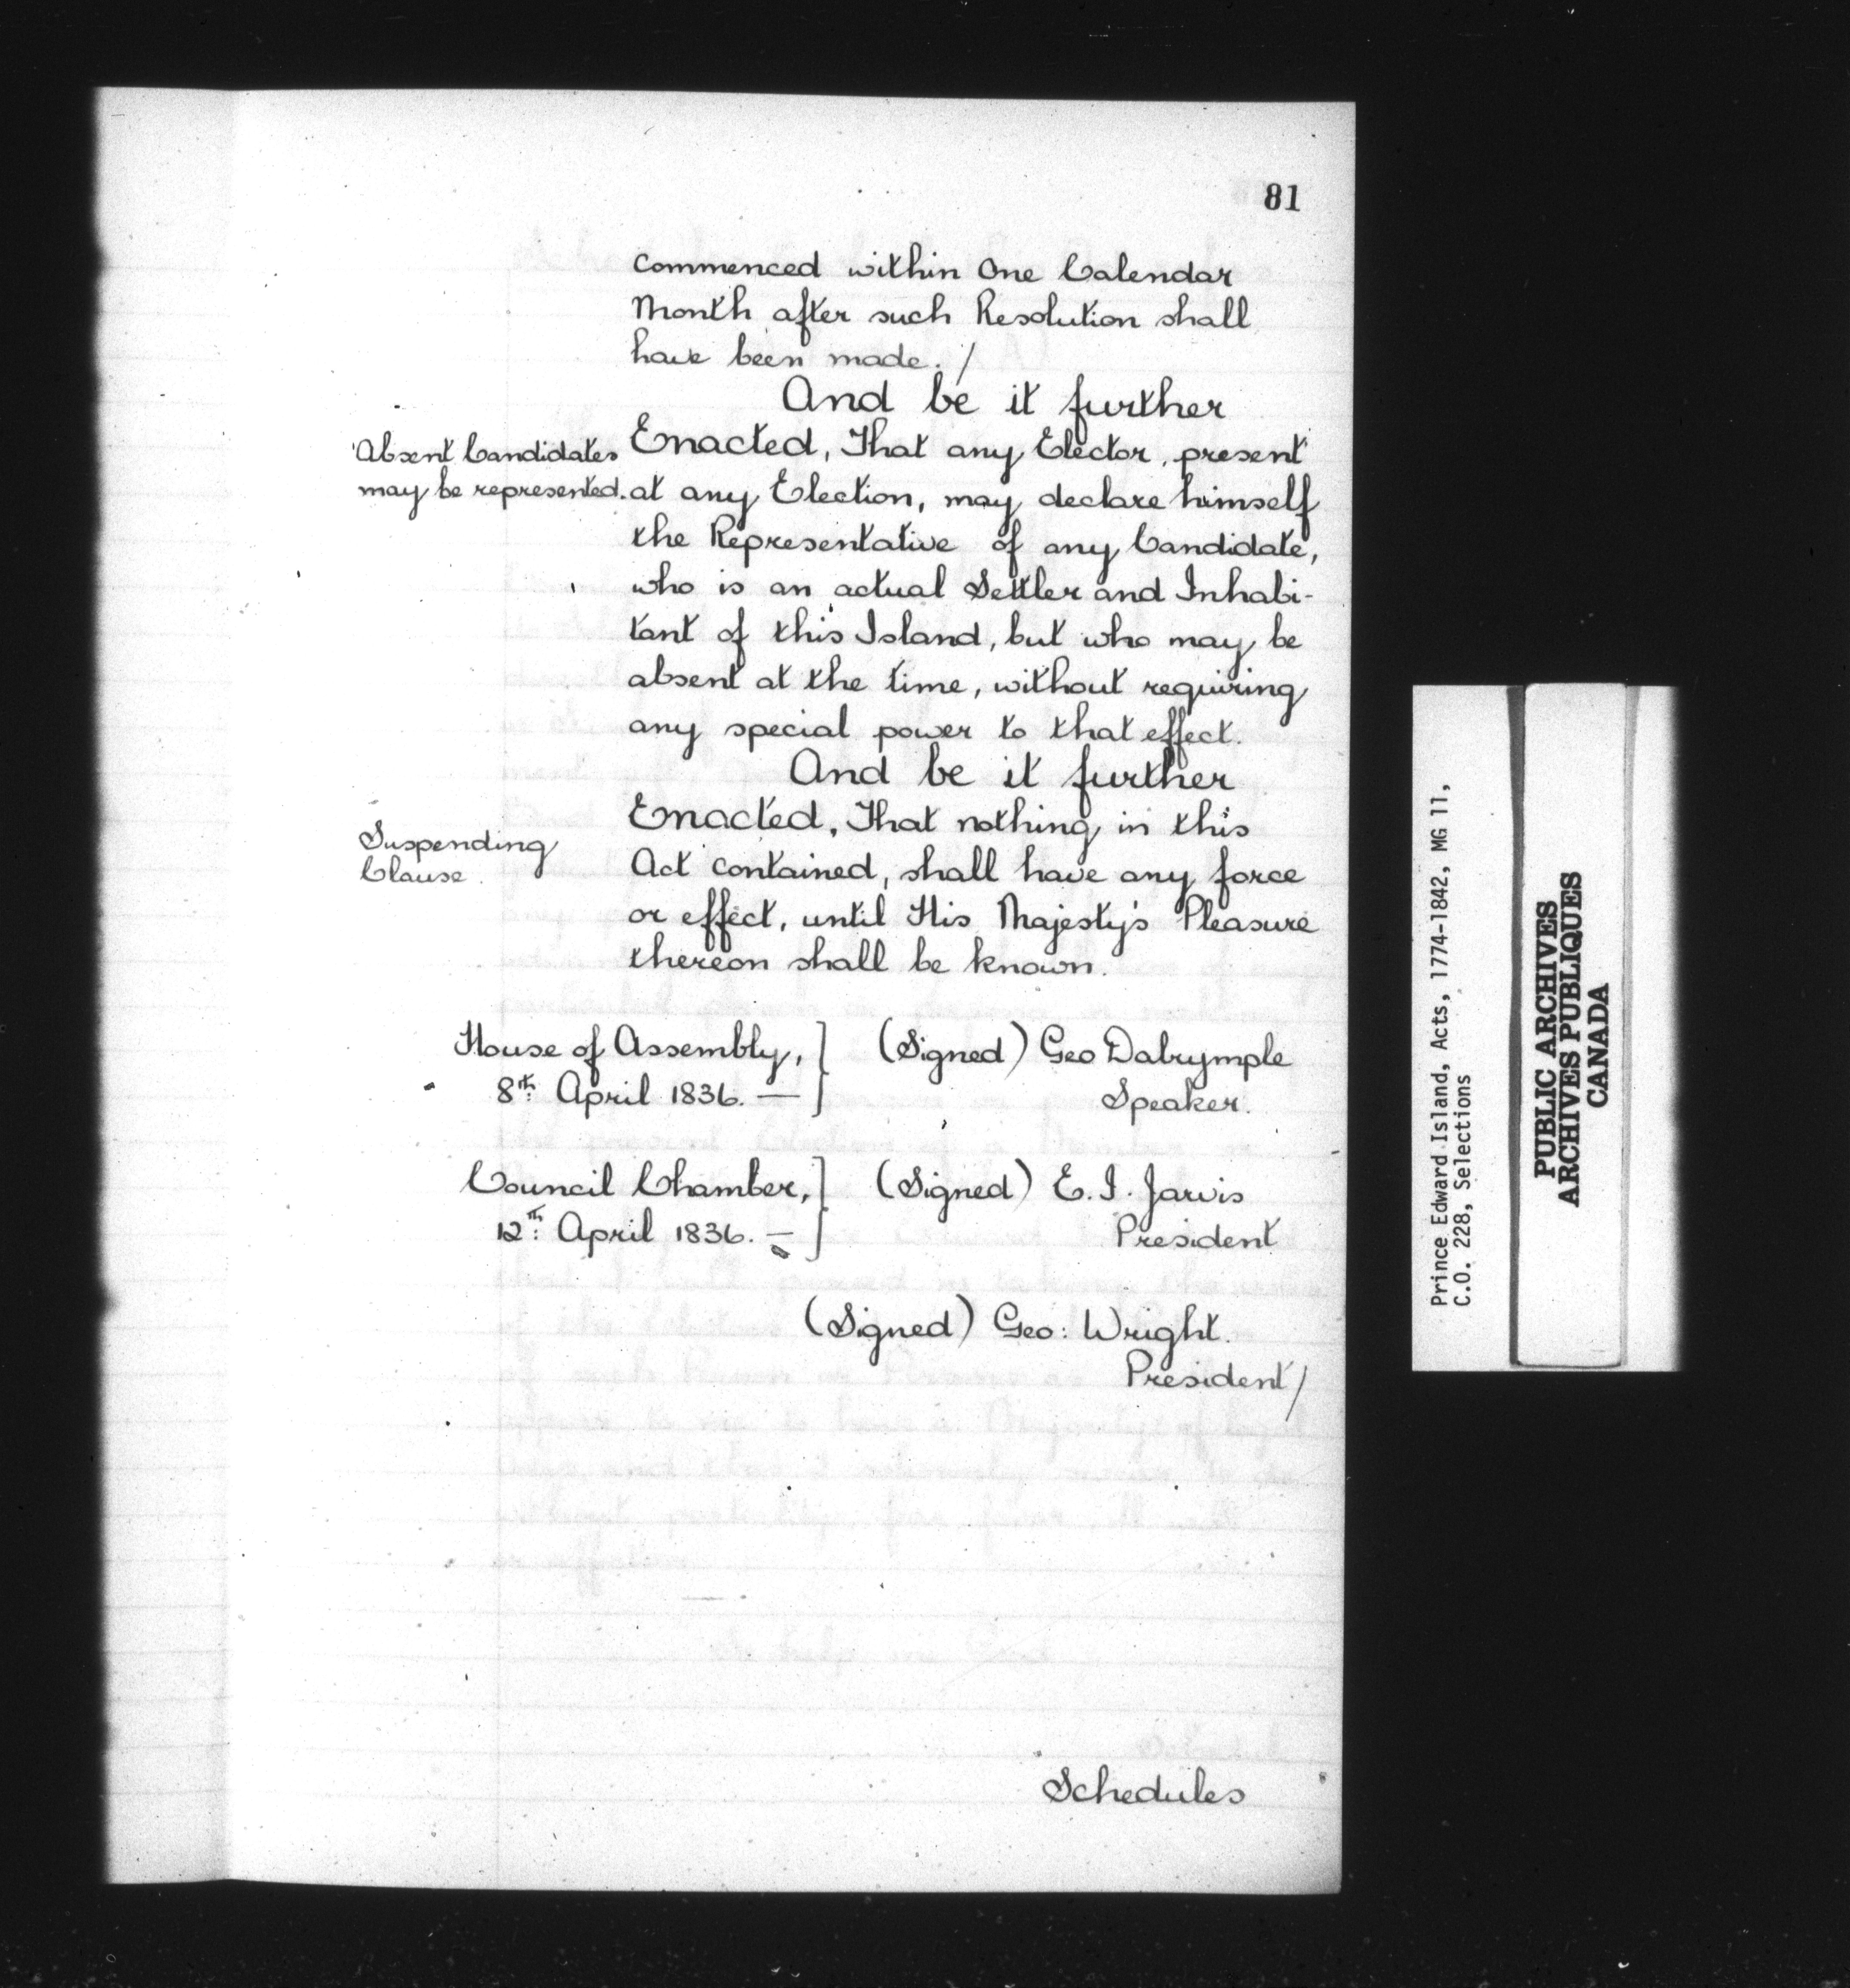 81
commenced within One Calendar
Month after such Resolution shall
have been made. /
And be it further
Absent Candidates
may be represented.
Enacted, That any Elector, present
at any Election, may declare himself
the Representative of any Candidate,
who is an actual Settler and Inhabi-
tant of this Island, but who may be
absent at the time, without requiring
any special power to that effect.
And be it further
Suspending
Clause.
Enacted, That nothing in this
Act contained, shall have any force
or effect, until His Majesty's Pleasure
thereon shall be known.
House of Assembly, } (Signed) Geo Dalrymple
8th: April 1836. — } Speaker.
Council Chamber, } (Signed) E. I. Jarvis
12th: April 1836. — } President
(Signed) Geo: Wright.
President/
Schedules
Prince Edward Island, Acts, 1774-1842, MG 11,
C.O. 228, Selections
PUBLIC ARCHIVES
ARCHIVES PUBLIQUES
CANADA